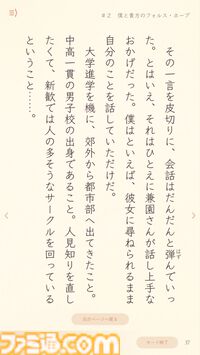 #2 僕と貴方のフォルス・ホープ
その一言を皮切りに、会話はだんだんと弾んでいっ
た。とはいえ、それはひとえに兼園さんが話し上手な
おかげだった。僕はといえば、彼女に尋ねられるまま
自分のことを話していただけだ。
大学進学を機に、郊外から都市部へ出てきたこと。
中高一貫の男子校の出身であること。人見知りを直し
たくて、新歓では人の多そうなサークルを回っている
ということ……。
次のページへ戻る
オート終了
37
ファミ通.com